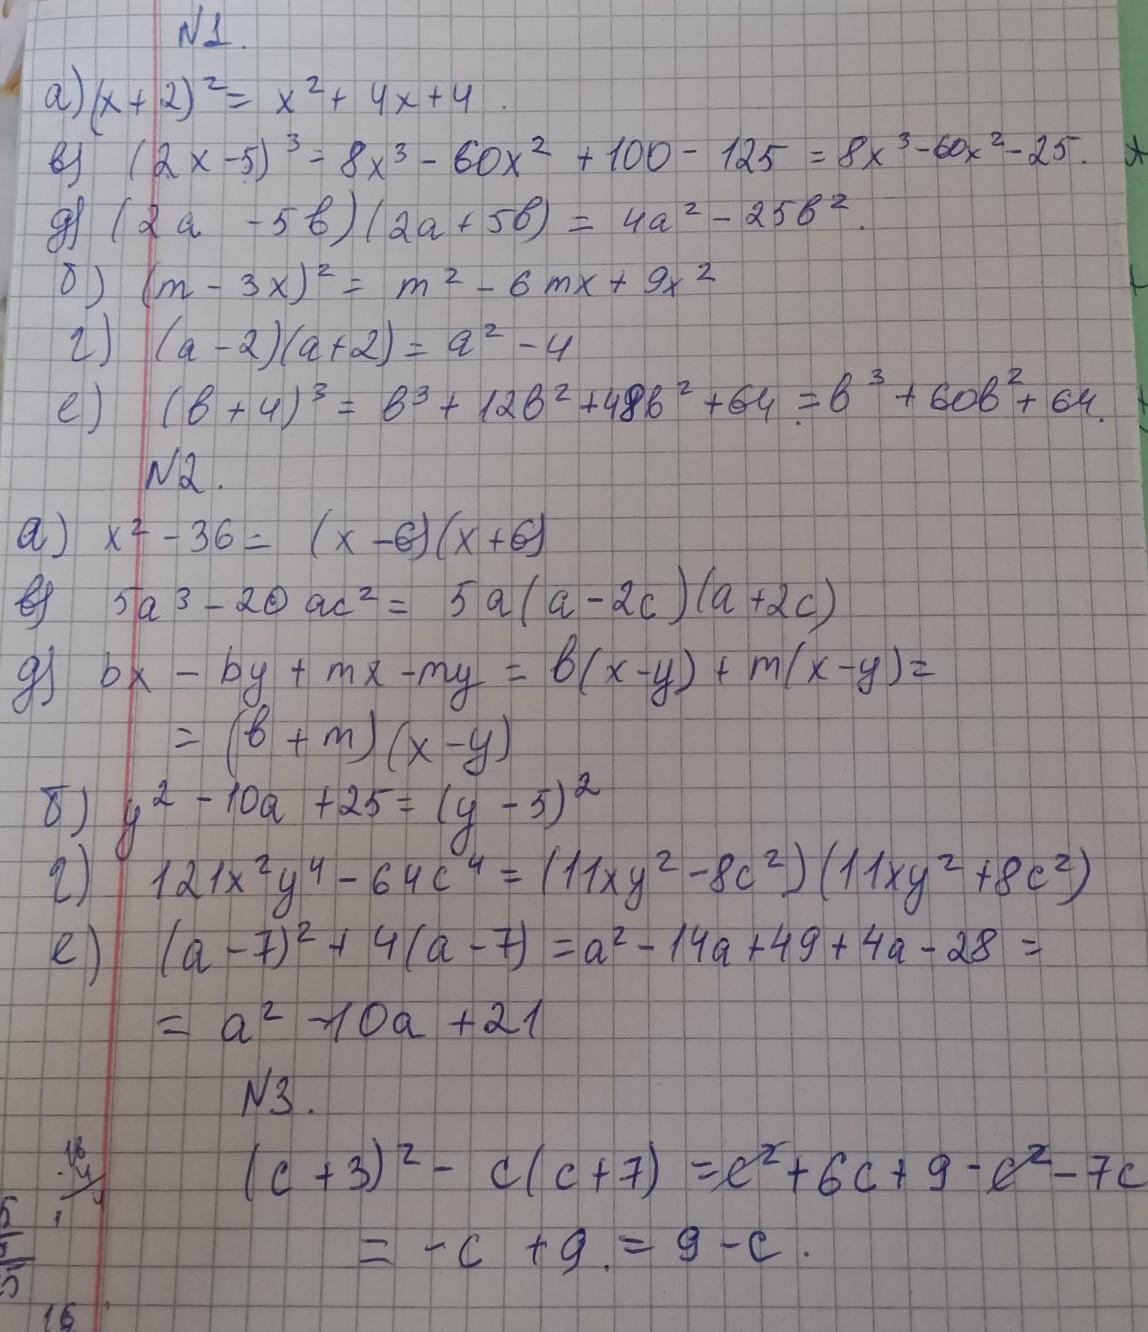 N1.
а) (x+2)² = x² + 4x + 4.
в) (2x - 5)³ = 8x³ - 60x² + 100 - 125 = 8x³ - 60x² - 25.
д) (2a - 5b)(2a + 5b) = 4a² - 25b².
б) (m - 3x)² = m² - 6mx + 9x²
г) (a - 2)(a + 2) = a² - 4
е) (b + 4)³ = b³ + 12b² + 48b² + 64 = b³ + 60b² + 64.
N2.
а) x² - 36 = (x - 6)(x + 6)
в) 5a³ - 20ac² = 5a(a - 2c)(a + 2c)
д) bx - by + mx - my = b(x - y) + m(x - y) =
= (b + m)(x - y)
б) y² - 10a + 25 = (y - 5)²
г) 121x²y⁴ - 64c⁴ = (11xy² - 8c²)(11xy² + 8c²)
е) (a - 7)² + 4(a - 7) = a² - 14a + 49 + 4a - 28 =
= a² - 10a + 21
N3.
(c + 3)² - c(c + 7) = c² + 6c + 9 - c² - 7c
= -c + 9 = 9 - c.
16